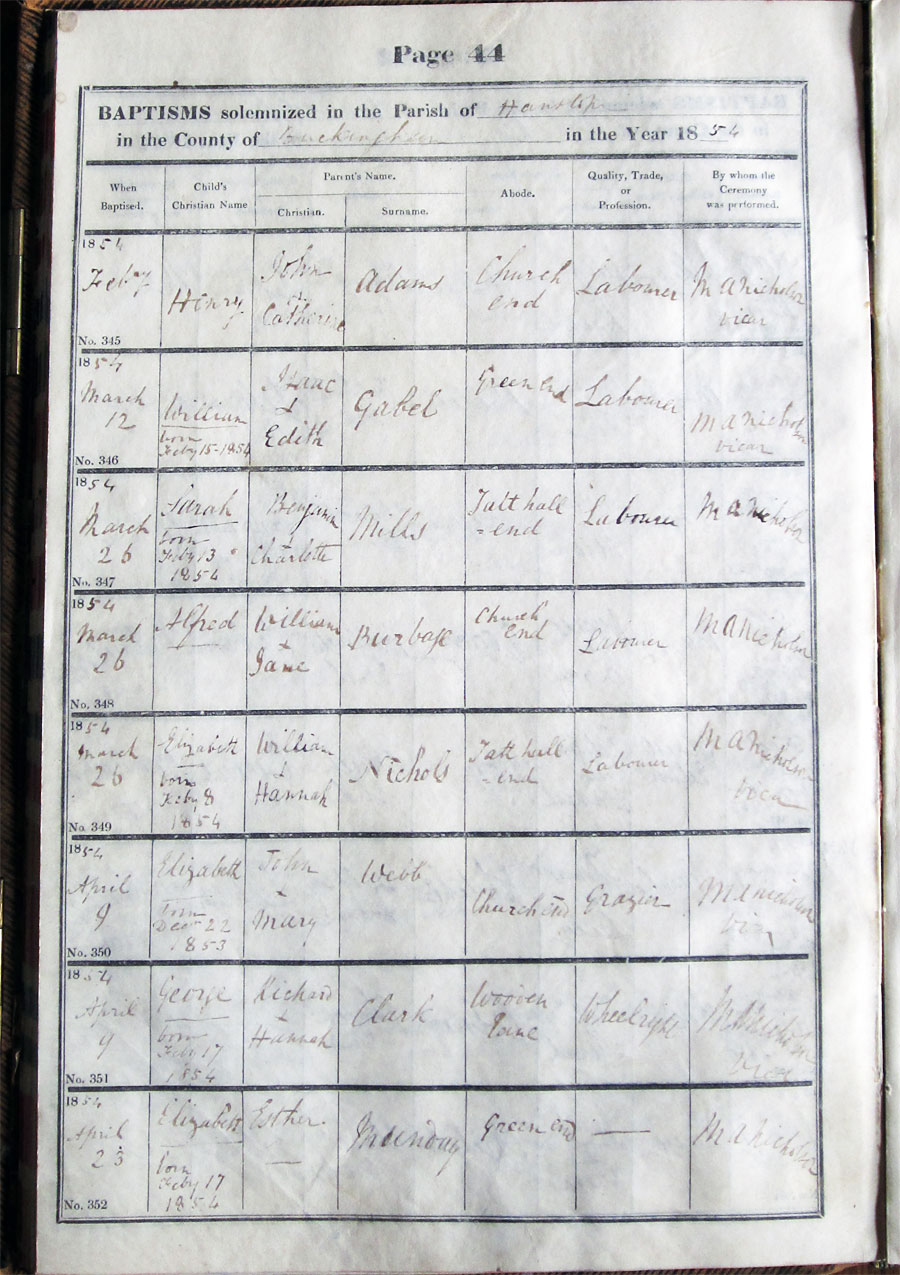 Page 44
BAPTISMS solemnized in the Parish of Hanslop
in the County of Buckingham in the Year 1854
When Baptised.
Child's Christian Name
Parent's Name.
Christian.
Surname.
Abode.
Quality, Trade, or Profession.
By whom the Ceremony was performed.
1854
Feby 7
No. 345
Henry
John
&
Catherine
Adams
Church
end
Labourer
M A Nicholson
vicar
1854
March
12
No. 346
William
born
Feby 15-1854
Isaac
&
Edith
Gabel
Green end
Labourer
M A Nicholson
vicar
1854
March
26
No. 347
Sarah
born
Feby 13
1854
Benjamin
&
Charlotte
Mills
Tatt hall
-end
Labourer
M A Nicholson
1854
March
26
No. 348
Alfred
William
&
Jane
Burbage
Church
end
Labourer
M A Nicholson
1854
March
26
No. 349
Elizabeth
born
Feby 8
1854
William
&
Hannah
Nichols
Tatt hall
-end
Labourer
M A Nicholson
vicar
1854
April
9
No. 350
Elizabeth
born
Decr 22
1853
John
&
Mary
Webb
Church end
Grazier
M A Nicholson
vicar
1854
April
9
No. 351
George
born
Feby 17
1854
Richard
&
Hannah
Clark
Wooven
lane
Wheelright
M A Nicholson
vicar
1854
April
23
No. 352
Elizabeth
born
Feby 17
1854
Esther
—
Munday
Green end
—
M A Nicholson